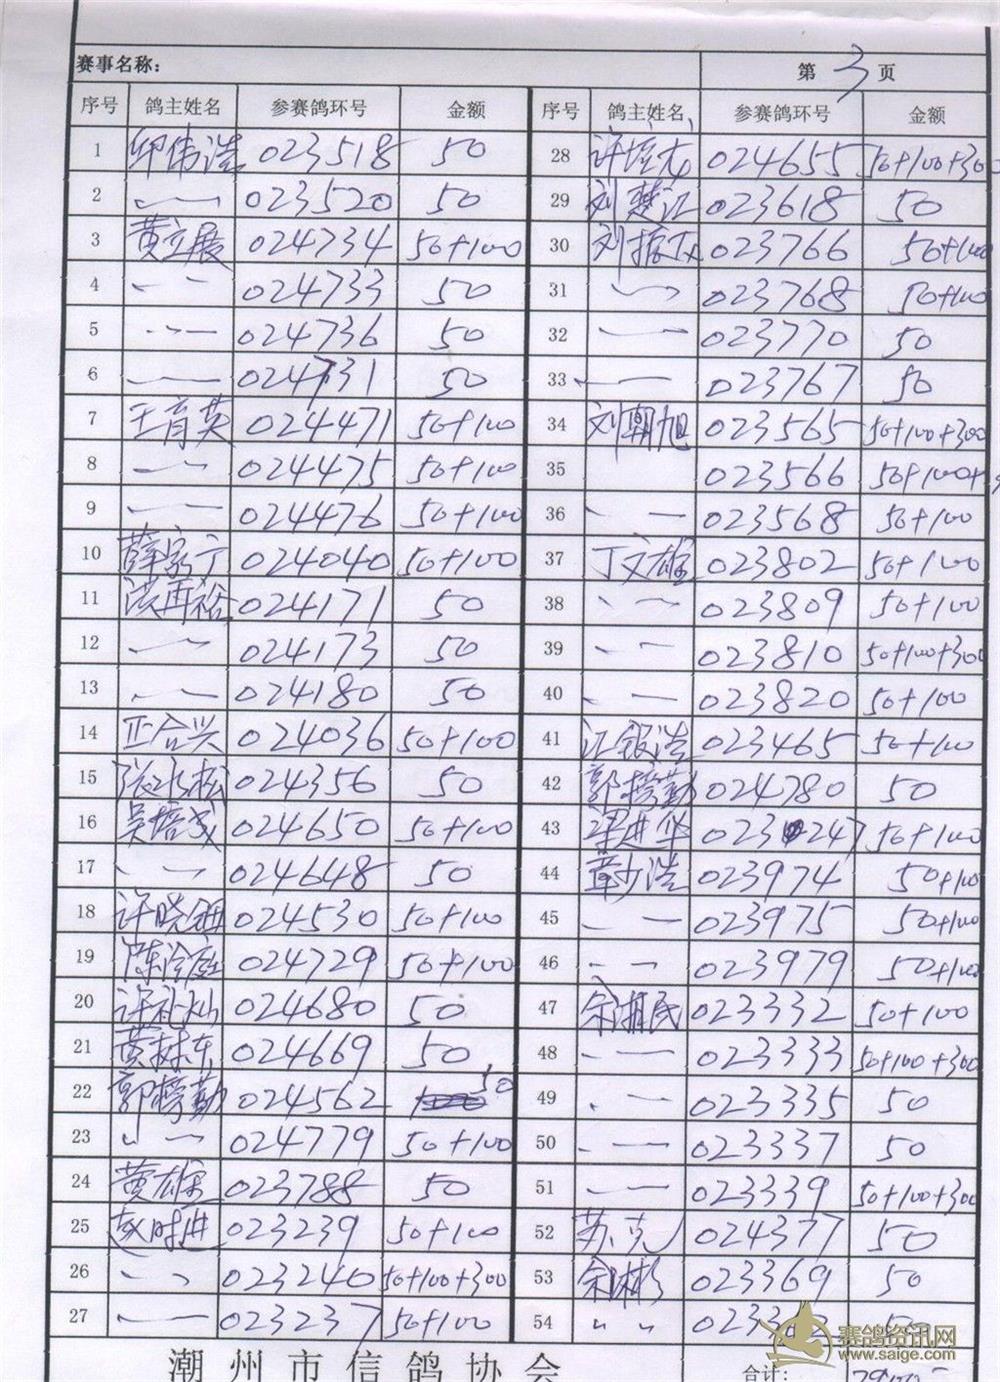 赛事名称: 第 3 页
序号 鸽主姓名 参赛鸽环号 金额 序号 鸽主姓名 参赛鸽环号 金额
1 邱伟浩 023518 50 28 许培龙 024655 50+100+300
2 〃 023520 50 29 刘楚江 023618 50
3 黄立展 024734 50+100 30 刘振 023766 50+100
4 〃 024733 50 31 〃 023768 50+100
5 〃 024736 50 32 〃 023770 50
6 〃 024731 50 33 〃 023767 50
7 王育英 024471 50+100 34 刘朝旭 023565 50+100+300
8 〃 024475 50+100 35 023566 50+100+
9 〃 024476 50+100 36 〃 023568 50+100
10 薛家宁 024040 50+100 37 丁文雄 023802 50+100
11 洪再裕 024171 50 38 〃 023809 50+100
12 〃 024173 50 39 〃 023810 50+100+300
13 〃 024180 50 40 〃 023820 50+100
14 合兴 024036 50+100 41 江银浩 023465 50+100
15 张水松 024356 50 42 郭榜勤 024780 50
16 吴培茂 024650 50+100 43 梁进华 023247 50+100
17 〃 024648 50 44 章少浩 023974 50+100
18 许晓 024530 50+100 45 〃 023975 50+100
19 陈 024729 50+100 46 〃 023979 50+100
20 许礼灿 024680 50 47 余湘民 023332 50+100
21 黄林东 024669 50 48 〃 023333 50+100+300
22 郭榜勤 024562 50 49 〃 023335 50
23 〃 024779 50+100 50 〃 023337 50
24 黄雄 023788 50 51 〃 023339 50+100+300
25 赵时进 023239 50+100 52 苏克 024377 50
26 〃 023240 50+100+300 53 余彬 023369 50
27 〃 023237 50+100 54 〃 〃
潮州市信鸽协会 合计:
赛鸽资讯网
www.saige.com